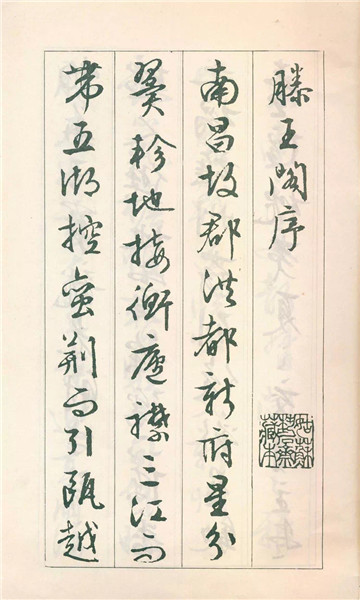 滕王閣序
南昌故郡洪都新府星分
翼軫地接衡廬襟三江而
帶五湖控蠻荊而引甌越